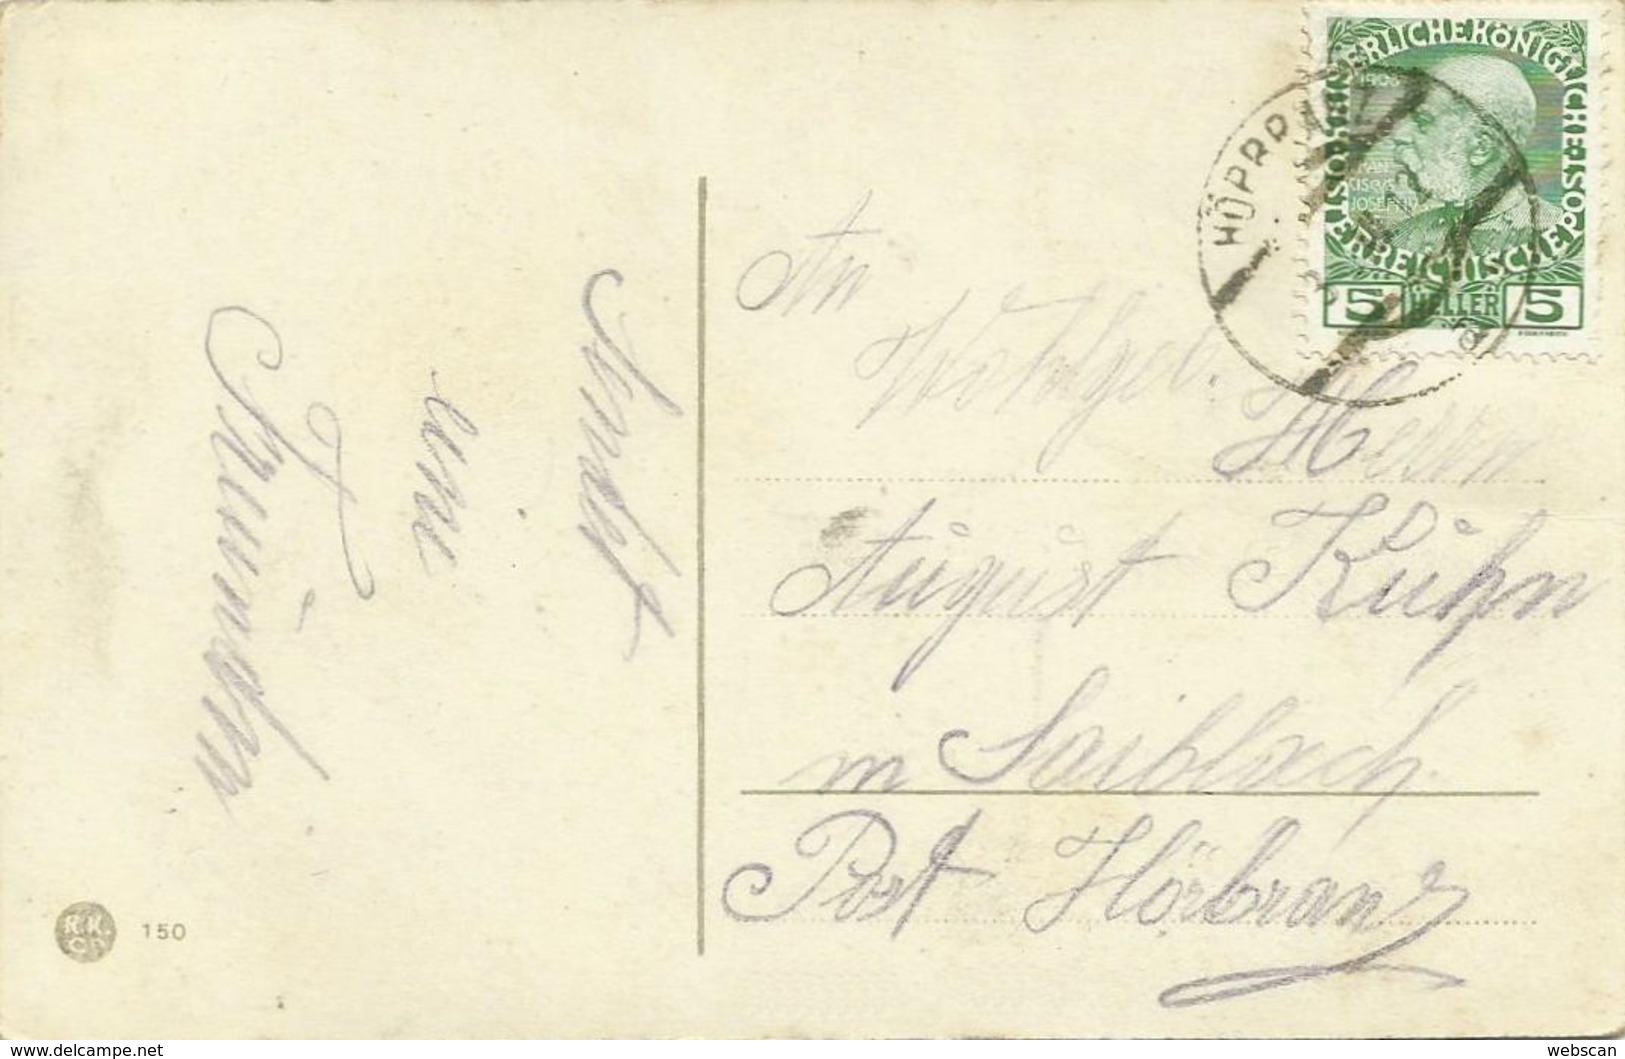 KAISERLICHE KÖNIGLICHE ÖSTERREICHISCHE POST
5 HELLER 5
HÖRBRANZ
An
Wohlgeb. Herrn
August Kühn
in Saiblach
Post Hörbranz
Sendet
eine
Freundin
R.K.
Co
150
www.delcampe.net
webscan